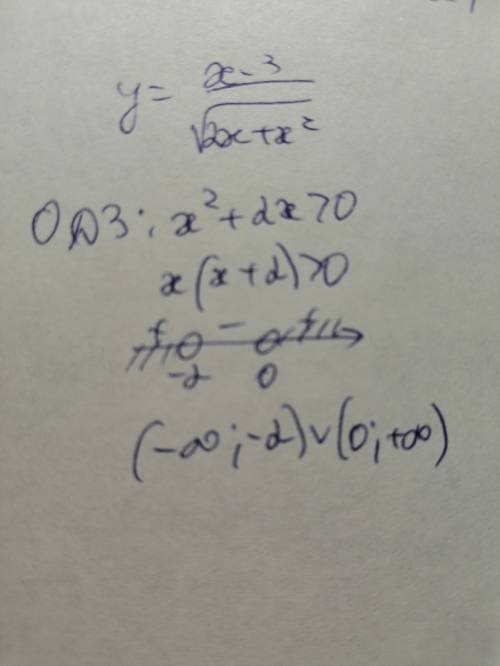 y = \frac{x-3}{\sqrt{2x+x^2}}
ОДЗ: x² + 2x > 0
x(x+2) > 0
+ − +
-2 0
(-∞; -2) ∪ (0; +∞)